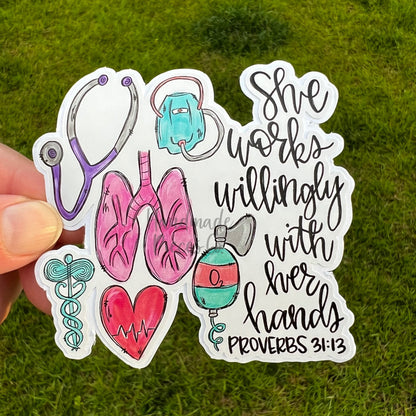 She
works
willingly
with
her
hands
PROVERBS 31:13
O2